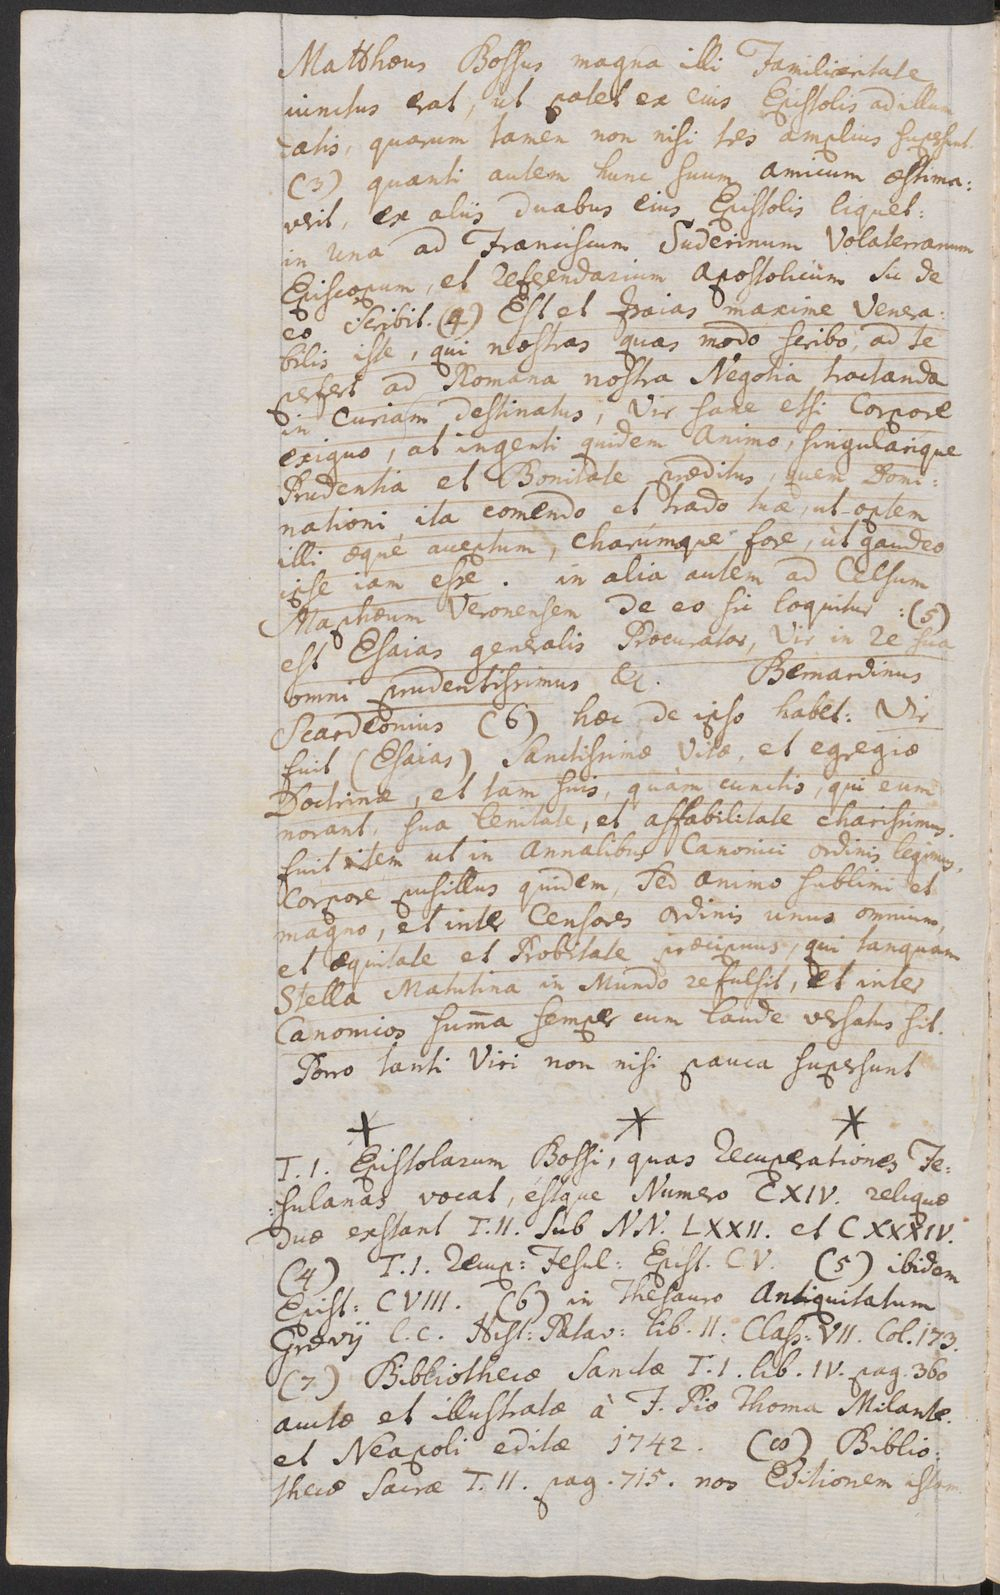 Matthæus Bossus magna illi Familiaritate
iunctus erat, ut patet ex eius Epistolis ad illum
datis, quarum tamen non nisi tres amplius supersunt.
(3) quanti autem hunc suum amicum æstima:
verit, ex aliis duabus eius Epistolis liquet:
in una ad Franciscum Suderinum Volaterranum
Episcopum, et Referendarium Apostolicum sic de
eo scribit. (4) Est et Esaias maxime Venera:
bilis iste, qui nostras quas modo scribo, ad te
perfert ad Romana nostra Negotia tractanda
in Curiam destinatus, Vir sane etsi Corpore
exiguo, at ingenti quidem Animo, singularique
Prudentia et Bonitate præditus, quem Domi:
nationi ita comendo et trado tuæ, ut optem
illi æquè aceptum, charúmque fore, ùt gaudeo
ipse iam esse. in alia autem ad Celsum
Maphæum Veronensem de eo sic loquitur: (5)
est Esaias generalis Procurator, Vir in re sua
omni prudentissimus &c. Bernardinus
Scardeonius (6) hæc de ipso habet: Vir
fuit (Esaias) Sanctissimæ Vitæ, et egregiæ
Doctrinæ, et tam suis, quàm cunctis, qui eum
norant, sua lenitate, et affabilitate charissimus.
fuit item ut in Annalibus Canonici ordinis legimus,
Corpore pusillus quidem, sed animo sublimi et
magno, et inter Censores ordinis unus omnium,
et æquitate et Probitate præcipuus, qui tanquam
Stella Matutina in Mundo refulsit, et inter
Canonicos sum̃a semper cum laude versatus sit.
Porro tanti Viri non nisi pauca supersunt
T. I. Epistolarum Bossi, quas Recuperationes Fe:
:sulanas vocat, éstque Numero CXIV. reliquæ
duæ exstant T. II. sub NN. LXXII. et CXXXIV.
(4) T. I. Recup: Fesul: Epist. CV. (5) ibidem
Epist: CVIII. (6) in Thesauro Antiquitatum
Grævij l. c. Hist: Patav: lib. II. Class: VII. Col. 173.
(7) Bibliothecæ Sanctæ T. I. lib. IV. pag. 360
auctæ et illustratæ à F. Pio Thoma Milante.
et Neapoli editæ 1742. (8) Biblio:
thecæ Sacræ T. II. pag. 715. nos Editionem istam